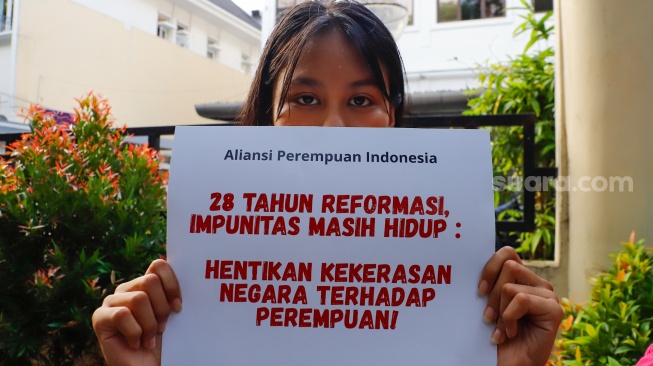 Aliansi Perempuan Indonesia
28 TAHUN REFORMASI,
IMPUNITAS MASIH HIDUP :
HENTIKAN KEKERASAN
NEGARA TERHADAP
PEREMPUAN!
suara.com